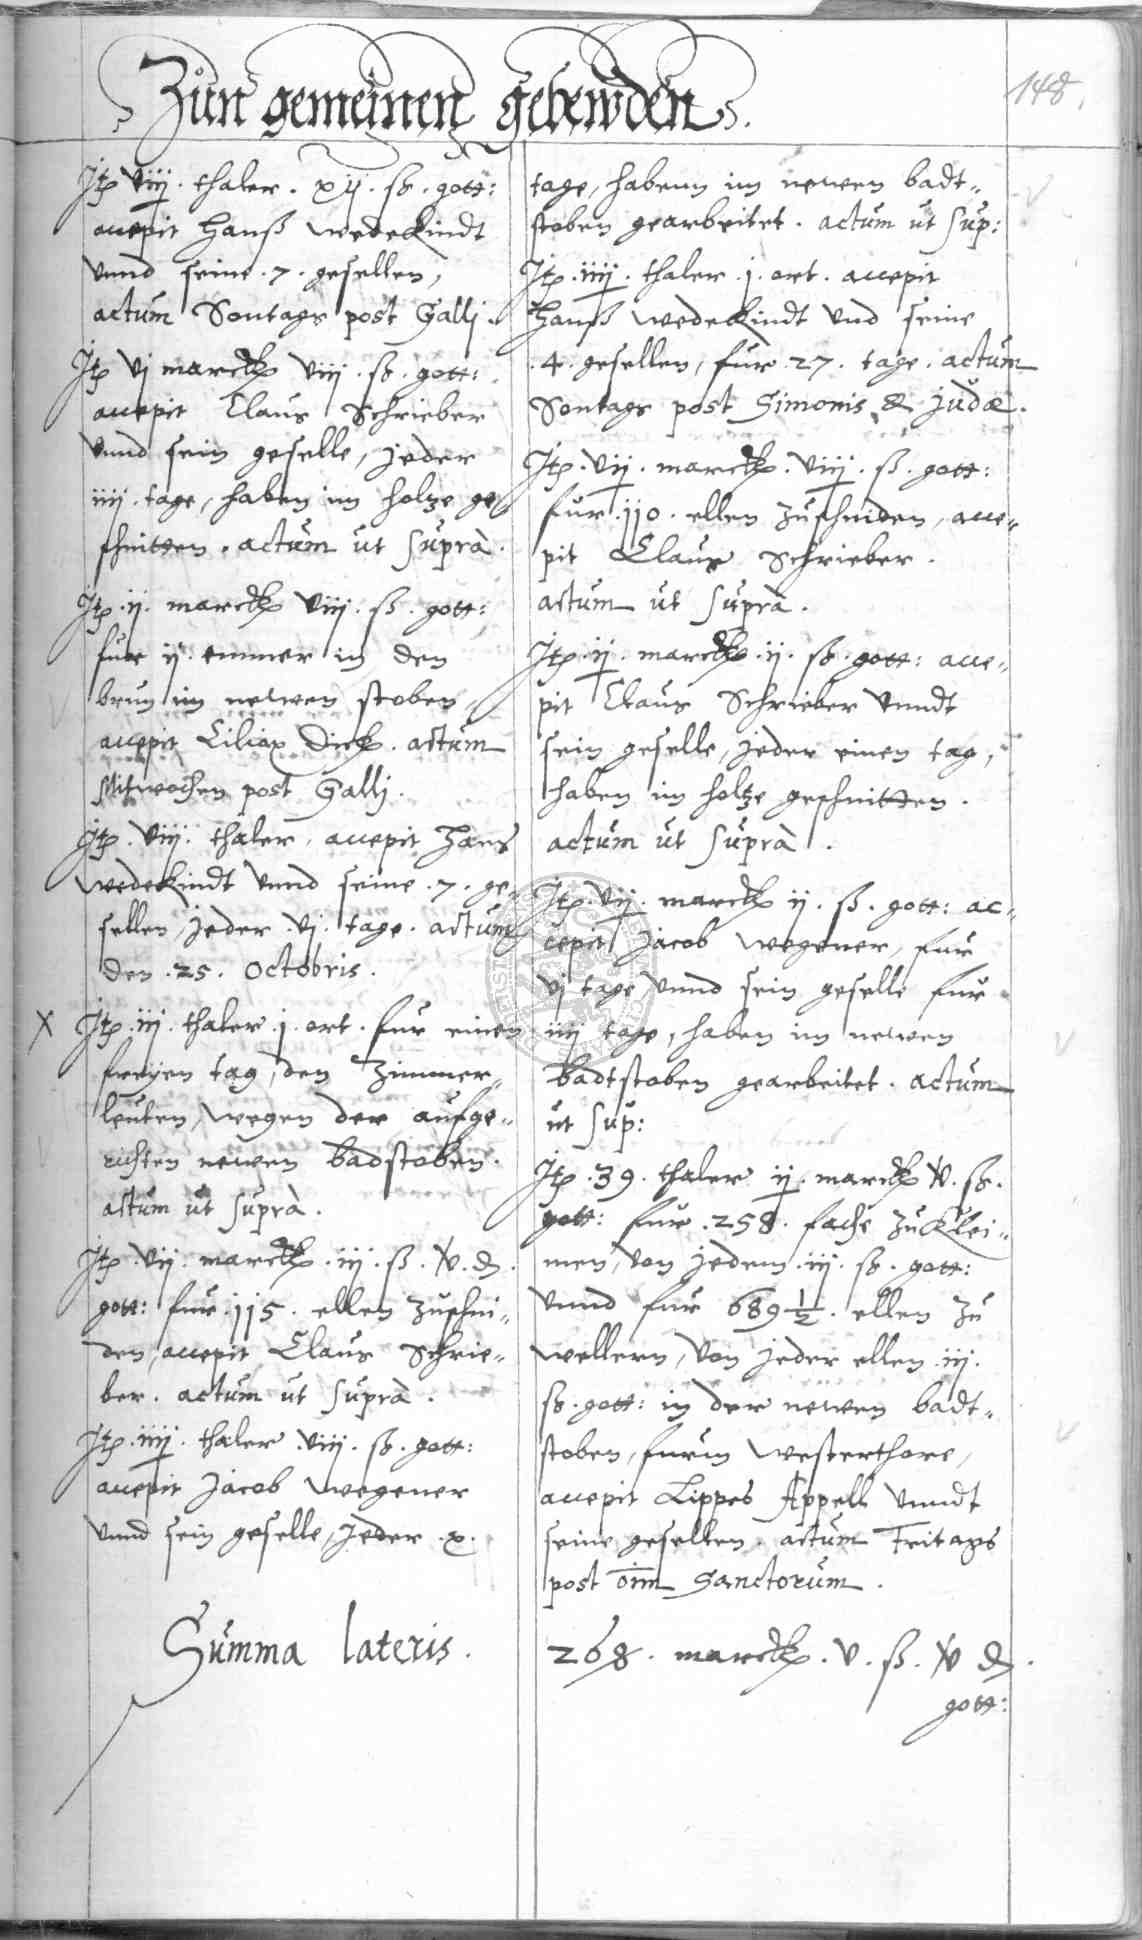 Zun gemeinen gebewden.
148.
Itʒ viij. thaler. xij. ß. gott:
accepit Hanß Wedekindt
vnnd seine .7. gesellen,
actum Sontags post Galli.
Itʒ vj marckʒ viij. ß. gott:
accepit Claus Schrieber
vnnd sein geselle, jeder
iiij. tage, haben im holtze ge
schnitten. actum ut suprà.
Itʒ .ij. marckʒ viij. ß. gott:
fur ij. emmer in den
brun im newen stoben,
accepit Ciliax Dick. actum
Mitwochen post Galli.
Itʒ. viij. thaler, accepit Hans
Wedekindt vnnd seine .7. ge-
sellen, jeder .vj. tage. actum
den .25. Octobris.
X Itʒ .iij. thaler .j. ort. fur einen
freyen tag, den Zimmer-
leuten, wegen der aufge-
richten newen badstoben.
actum ut suprà.
Itʒ .vij. marckʒ .iij. ß. v. d.
gott: fur .115. ellen zuschni-
den, accepit Claus Schrie-
ber. actum ut suprà.
Itʒ .iiij. thaler .viij. ß. gott:
accepit Jacob Wegener
vnnd sein geselle, jeder .x.
tage, habenn im newen badt-
stoben gearbeitet. actum ut sup:
Itʒ .iiij. thaler .j. ort. accepit
Hanß Wedekindt vnd seine
.4. gesellen, fur .27. tage. actum
Sontags post Simonis & Judæ.
Itʒ .vij. marckʒ .viij. ß. gott:
fur .110. ellen zuschniden, acce-
pit Claus Schrieber.
actum ut suprà.
Itʒ .ij. marckʒ .ij. ß. gott: acce-
pit Claus Schrieber vnndt
sein geselle, jeder einen tag,
haben im holtze geschnitten.
actum ut suprà.
Itʒ .vij. marckʒ ij. ß. gott: ac-
cepit Jacob Wegener, fur
vj tage vnnd sein geselle fur
iiij tage, haben im newen
badtstoben gearbeitet. actum
ut sup:
Itʒ .39. thaler ij. marckʒ v. ß.
gott: fur .258. fache zu klei-
men, von jedem .iij. ß. gott:
vnnd fur 689 1/2. ellen zu
wellern, von jeder ellen .iij.
ß. gott: in der newen badt-
stoben, furm Westerthore,
accepit Lippes Appell vnndt
seine gesellen. actum Fritags
post oim Sanctorum.
Summa lateris. 268. marckʒ. v. ß. v d.
gott: